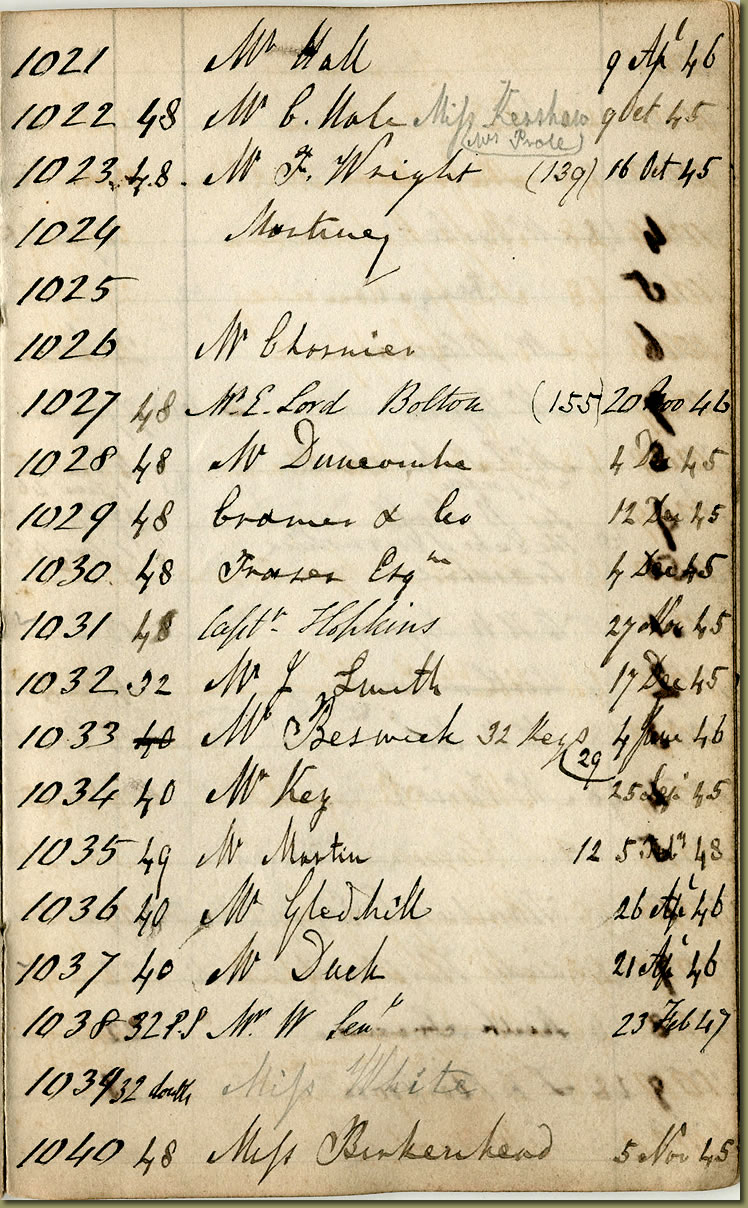 1021 Mr Hall 9 Apl 46
1022 48 Mr C. Hale Miss Kershaw 9 Oct 45
(Mrs Prole)
1023 48 Mr F. Wright (139) 16 Oct 45
1024
1025
1026 Mr
1027 48 Mr. E. Lord Bolton (155) 20 Nov 46
1028 48 Mr Duncombe 4 Dec 45
1029 48 Cramer & Co 12 Dec 45
1030 48 Fraser Esqre 4 Dec 45
1031 48 Captn. Hopkins 27 Nov 45
1032 32 Mr J Smith 17 Dec 45
1033 40 Mr Beswick 32 Keys 4 June 46
(29
1034 40 Mr Key 25 Sep 45
1035 49 Mr Martin 12 5 48
1036 40 Mr Gledhill 26 Apl 46
1037 40 Mr Duck 21 Apl 46
1038 32 P.S Mr W Senr 23 Feb 47
1039 32 double Miss White
1040 48 Miss Birkenhead 5 Nov 45